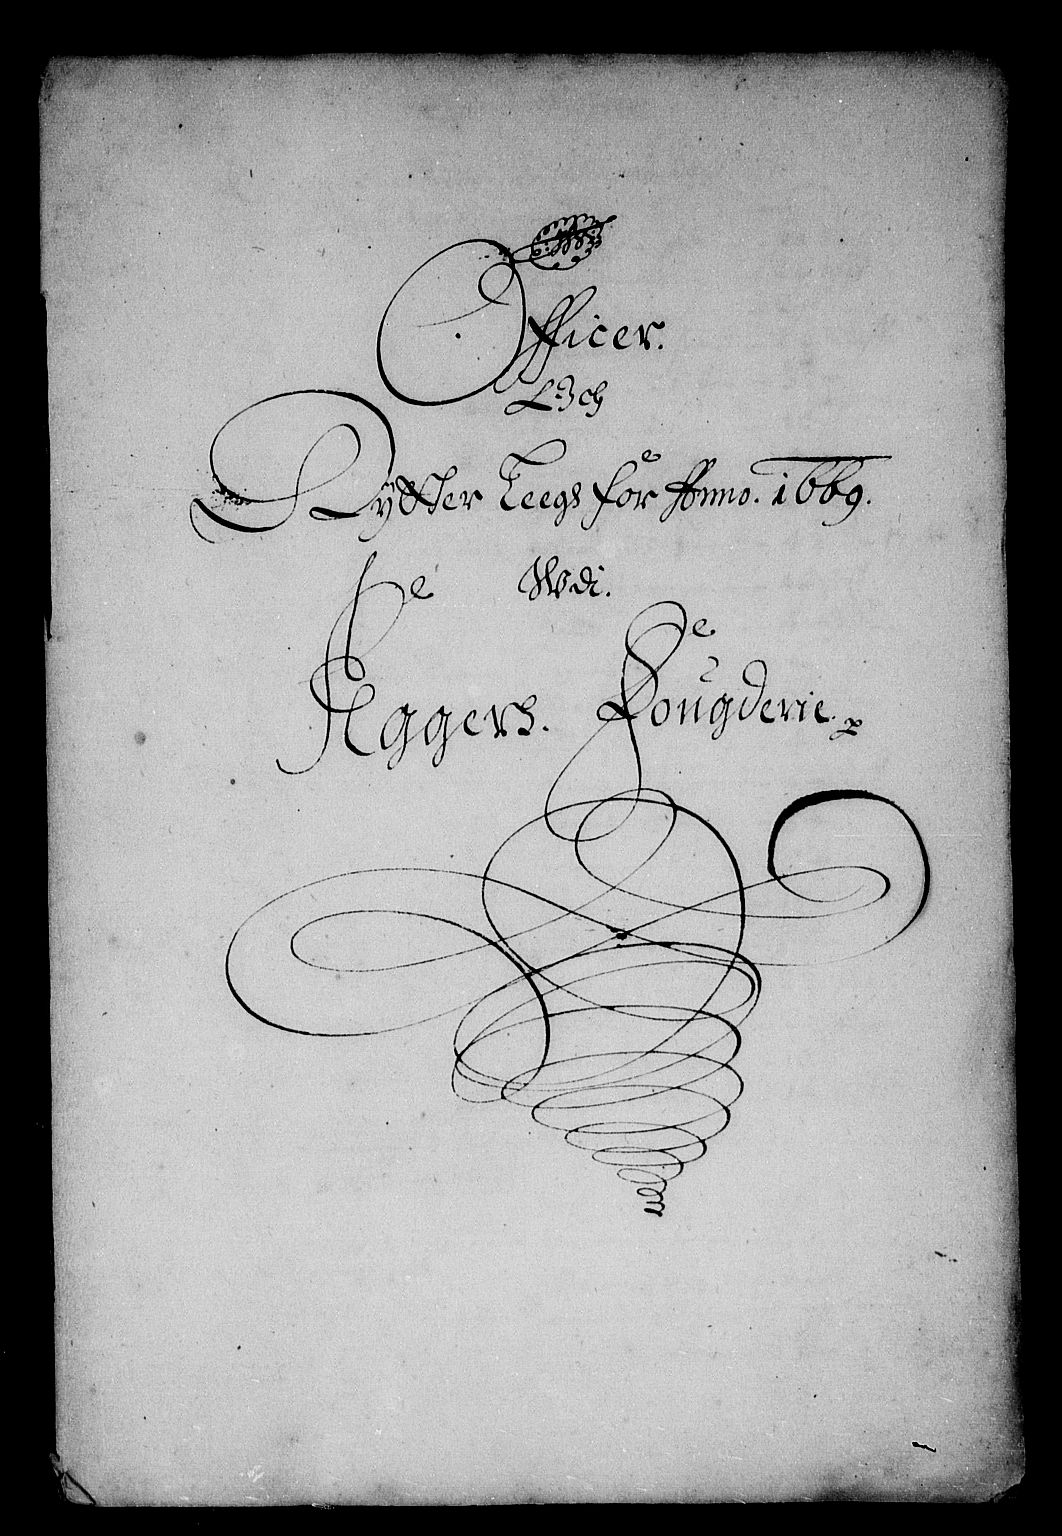 Officer.
Och
Rytter Leegs for Anno. 1669.
Wdi.
Aggers. Fougderie